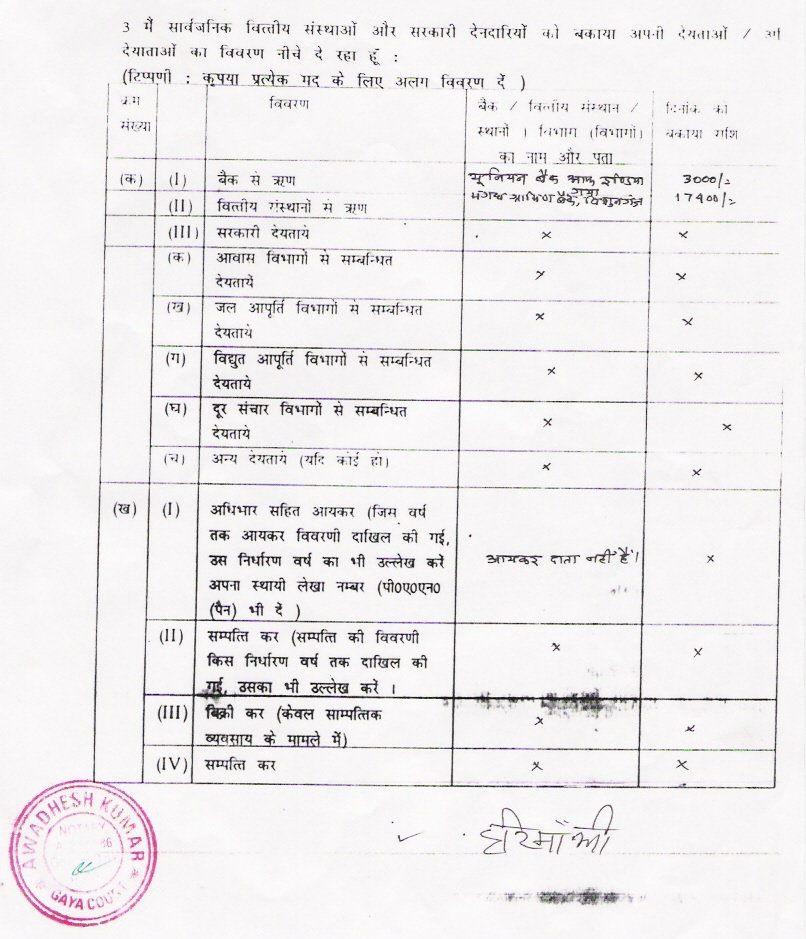 3 मैं सार्वजनिक वित्तीय संस्थाओं और सरकारी देनदारियों को बकाया अपनी देयताओं /
देयाताओं का विवरण नीचे दे रहा हूँ :
(टिप्पणी : कृपया प्रत्येक मद के लिए अलग विवरण दें )
क्रम संख्या
विवरण
बैंक / वित्तीय संस्थान /
स्थानों । विभाग (विभागों)
का नाम और पता
दिनांक को
बकाया राशि
(क) (I) बैंक से ऋण यूनियन बैंक आफ इण्डिया गया 3000/-
(II) वित्तीय संस्थानों से ऋण मगध ग्रामिण बैंक, 17400/-
(III) सरकारी देयताये × ×
(क) आवास विभागों से सम्बन्धित
देयतायें × ×
(ख) जल आपूर्ति विभागों से सम्बन्धित
देयताये × ×
(ग) विद्युत आपूर्ति विभागों से सम्बन्धित
देयताये × ×
(घ) दूर संचार विभागों से सम्बन्धित
देयताये × ×
(च) अन्य देयताये (यदि कोई हो) × ×
(ख) (I) अधिभार सहित आयकर (जिस वर्ष
तक आयकर विवरणी दाखिल की गई,
उस निर्धारण वर्ष का भी उल्लेख करें आयकर दाता नहीं है। ×
अपना स्थायी लेखा नम्बर (पी०ए०एन०
(पैन) भी दें )
(II) सम्पत्ति कर (सम्पत्ति की विवरणी × ×
किस निर्धारण वर्ष तक दाखिल की
गई, उसका भी उल्लेख करें ।
(III) बिक्री कर (केवल साम्पत्तिक × ×
व्यवसाय के मामले में)
(IV) सम्पत्ति कर × ×
AWADHESH KUMAR
NOTARY
GAYA COURT